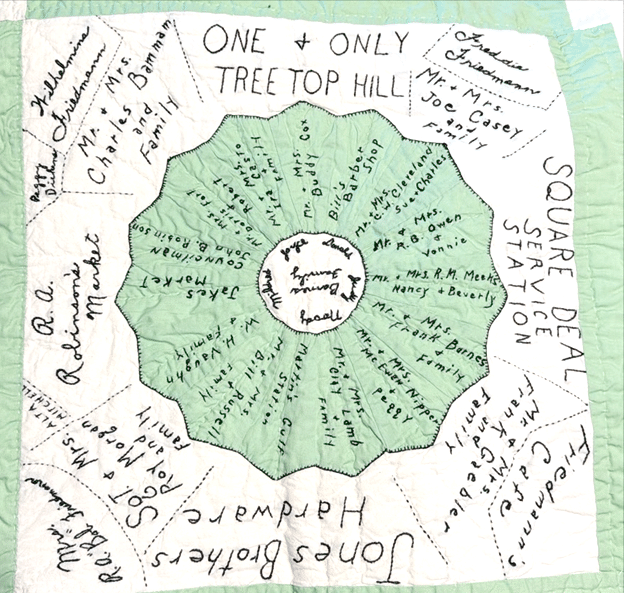 ONE & ONLY
TREE TOP HILL
Freddie
Friedmann
Mr. & Mrs.
Joe Casey
and
Family
SQUARE DEAL
SERVICE
STATION
Friedmann's
Cafe
Mr. & Mrs.
Frank Gaebler
and
Family
Jones Brothers
Hardware
Mrs.
R.A. Bob
SGT & Mrs.
Roy Morgan
and
Family
R. A.
Robinson's
Market
Peggy
Wilhelmina
Friedmann
Mr. & Mrs.
Charles Bammann
and
Family
Mr. & Mrs.
Buddy Cox
Bill's
Barber
Shop
Mr. & Mrs.
C. Cleveland
Sue & Charles
Mr. & Mrs.
R.B. Owen
& Vonnie
Mr. & Mrs. R.M. Meeks
Nancy & Beverly
Mr. & Mrs.
Frank Barnes
& Family
Mr. & Mrs. Nipper
McEwen &
Peggy
Mr. & Mrs.
Clay Lamb
& Family
Martins Curb
Station
Mr. & Mrs.
Bill Russell
& Family
H. Vaughn
& Family
Jakes
Market
Councilman
John B. Robinson
Mr. & Mrs.
Barnes
Family
Joyce
Judy